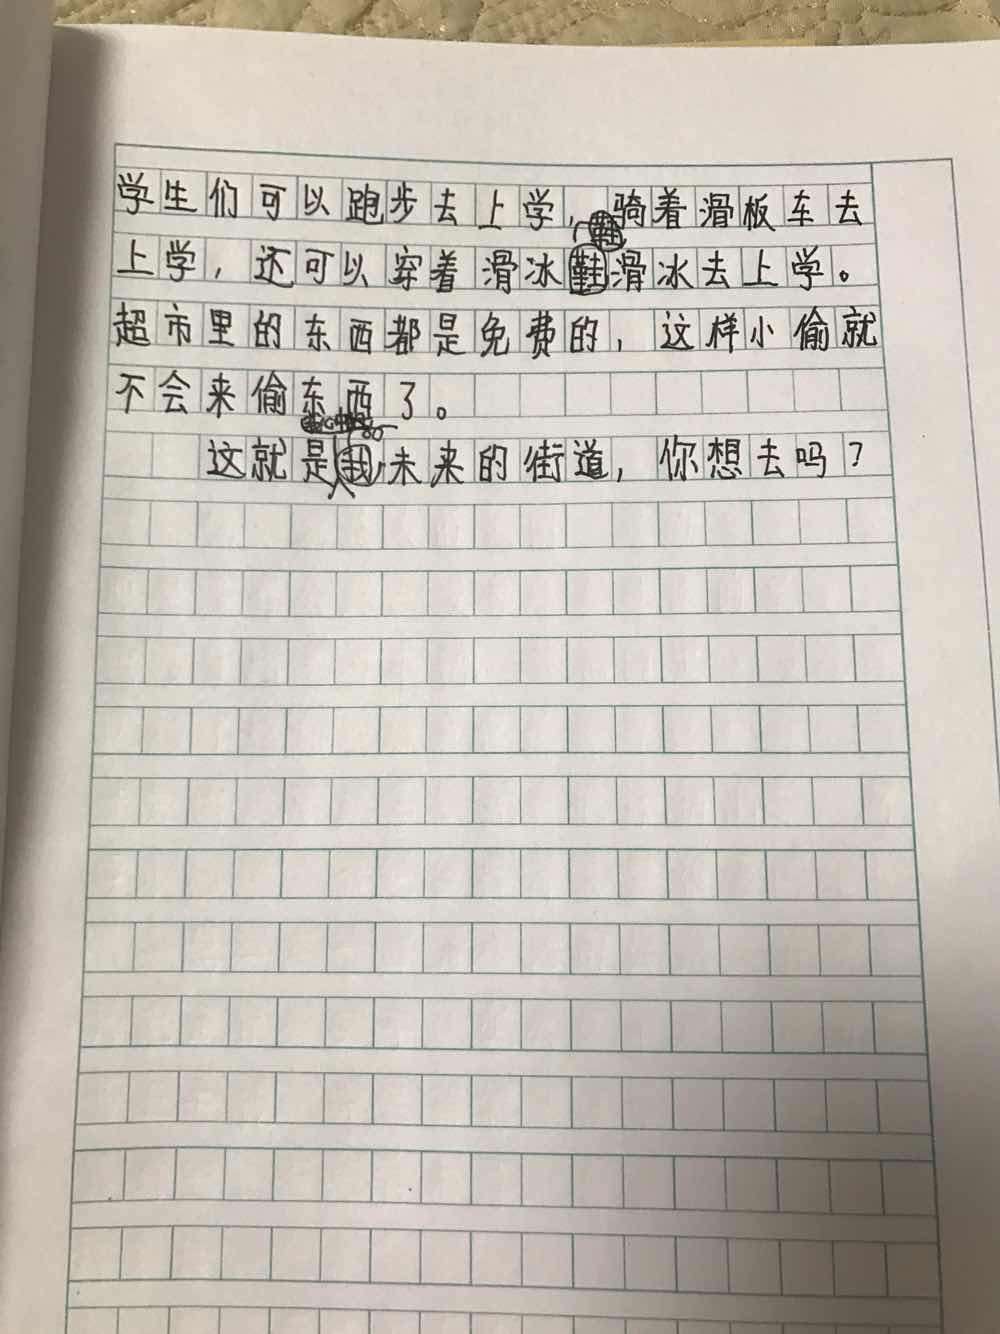 学生们可以跑步去上学，骑着滑板车去
上学，还可以穿着滑冰鞋滑冰去上学。
超市里的东西都是免费的，这样小偷就
不会来偷东西了。
这就是我未来的街道，你想去吗？